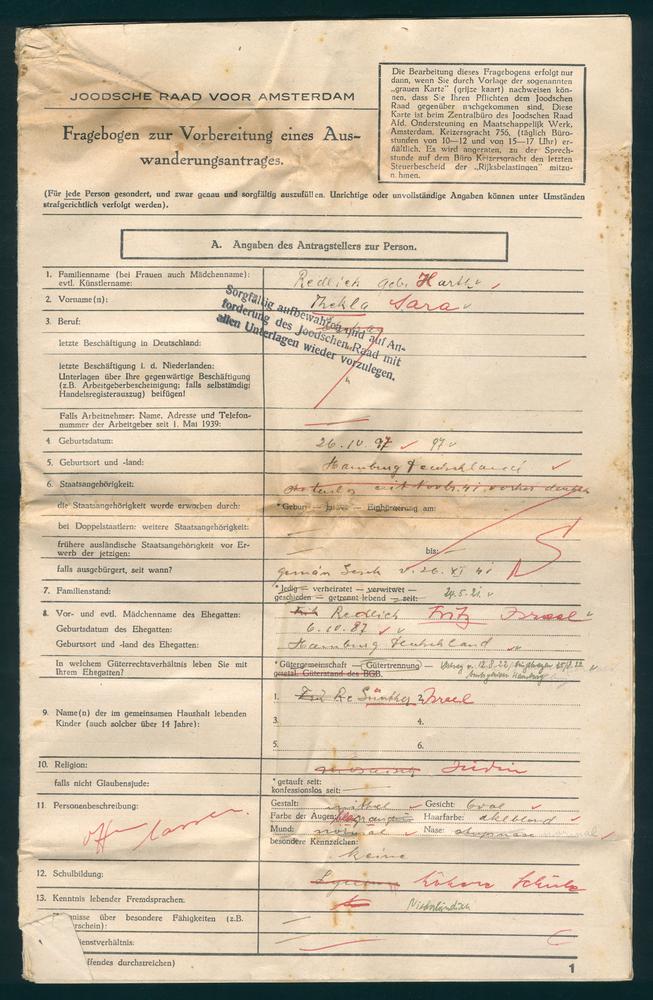 Die Bearbeitung dieses Fragebogens erfolgt nur
dann, wenn Sie durch Vorlage der sogenannten
„grauen Karte" (grijze kaart) nachweisen kön-
nen, dass Sie Ihren Pflichten dem Joodschen
Raad gegenüber nachgekommen sind. Diese
Karte ist beim Zentralbüro des Joodschen Raad
Afd. Ondersteuning en Maatschappelijk Werk,
Amsterdam, Keizersgracht 756, (täglich Büro-
stunden von 10—12 und von 15—17 Uhr) er-
hältlich. Es wird angeraten, zu der Sprech-
stunde auf dem Büro Keizersgracht den letzten
Steuerbescheid der „Rijksbelastingen" mitzu-
nehmen.
JOODSCHE RAAD VOOR AMSTERDAM
Fragebogen zur Vorbereitung eines Aus-
wanderungsantrages.
(Für jede Person gesondert, und zwar genau und sorgfältig auszufüllen. Unrichtige oder unvollständige Angaben können unter Umständen
strafgerichtlich verfolgt werden).
A. Angaben des Antragstellers zur Person.
1. Familienname (bei Frauen auch Mädchenname):
evtl. Künstlername:
Redlich geb. Harth
2. Vorname(n): Thekla Sara
Sorgfältig aufbewahren und auf An-
forderung des Joodschen Raad mit
allen Unterlagen wieder vorzulegen.
3. Beruf:
letzte Beschäftigung in Deutschland:
letzte Beschäftigung i. d. Niederlanden:
Unterlagen über Ihre gegenwärtige Beschäftigung
(z.B. Arbeitgeberbescheinigung; falls selbständig:
Handelsregisterauszug) beifügen!
Falls Arbeitnehmer: Name, Adresse und Telefon-
nummer der Arbeitgeber seit 1. Mai 1939:
4. Geburtsdatum: 26.10.97 97
5. Geburtsort und -land: Hamburg Deutschland
6. Staatsangehörigkeit:
die Staatsangehörigkeit wurde erworben durch: * Geburt — — Einbürgerung am:
bei Doppelstaatlern: weitere Staatsangehörigkeit:
frühere ausländische Staatsangehörigkeit vor Er-
werb der jetzigen: bis:
falls ausgebürgert, seit wann? gemäss v. 26. XI 41
7. Familienstand: * ledig — verheiratet — verwitwet —
geschieden — getrennt lebend — seit: 24.5.21
8. Vor- und evtl. Mädchenname des Ehegatten: Redlich Fritz Israel
Geburtsdatum des Ehegatten: 6.10.87
Geburtsort und -land des Ehegatten: Hamburg Deutschland
In welchem Güterrechtsverhältnis leben Sie mit
Ihrem Ehegatten?
* Gütergemeinschaft — Gütertrennung —
gesetzl. Güterstand des BGB.
Amtsgericht Hamburg
9. Name(n) der im gemeinsamen Haushalt lebenden
Kinder (auch solcher über 14 Jahre):
1. Günther 2. Israel
3. 4.
5. 6.
10. Religion: Jüdin
falls nicht Glaubensjude: * getauft seit:
konfessionslos seit:
11. Personenbeschreibung:
Gestalt: mittel Gesicht: Oval
Farbe der Augen: Haarfarbe: dklblond
Mund: normal Nase: normal
besondere Kennzeichen:
keine
12. Schulbildung: Höhere Schule
13. Kenntnis lebender Fremdsprachen: Niederländisch
nisse über besondere Fähigkeiten (z.B.
erschein):
dienstverhältnis:
ffendes durchstreichen)
1